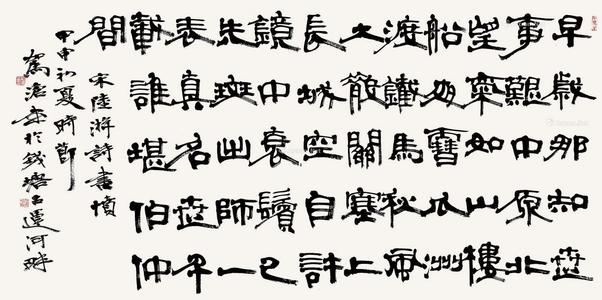 早歲那知世
事艱中原北
望氣如山樓
船夜雪瓜洲
渡鐵馬秋風
大散關塞上
長城空自許
鏡中衰鬢已
先斑出師一
表真名世千
載誰堪伯仲
間
宋陸游詩書憤
甲申初夏時節
書於錢塘古運河畔